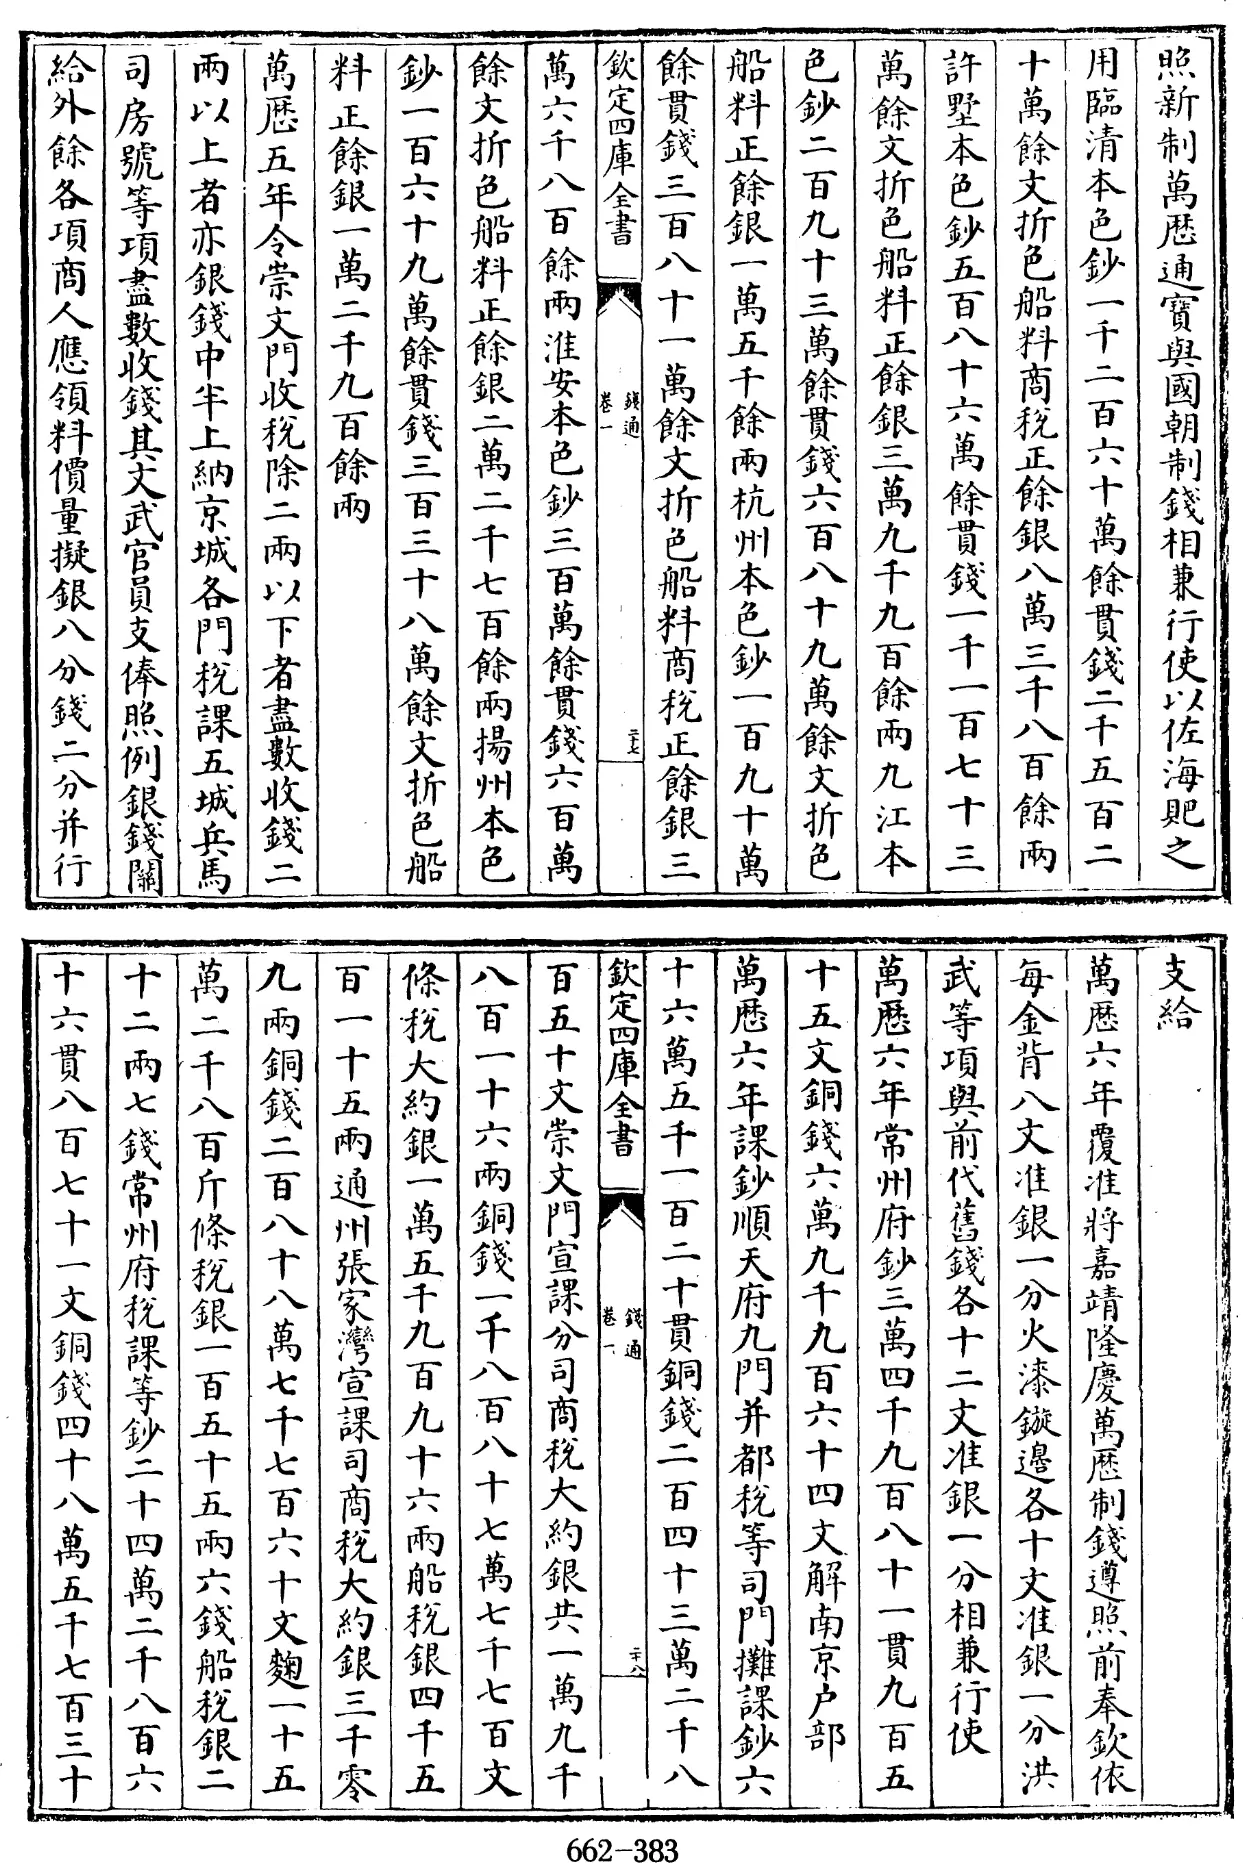 照新制萬歷通寶與國朝制錢相兼行使以佐海𧴩之
用臨清本色鈔一千二百六十萬餘貫錢二千五百二
十萬餘文折色船料商稅正餘銀八萬三千八百餘兩
許墅本色鈔五百八十六萬餘貫錢一千一百七十三
萬餘文折色船料正餘銀三萬九千九百餘兩九江本
色鈔二百九十三萬餘貫錢六百八十九萬餘文折色
船料正餘銀一萬五千餘兩杭州本色鈔一百九十萬
餘貫錢三百八十一萬餘文折色船料商稅正餘銀三
欽定四庫全書
錢通
卷一
二十七
萬六千八百餘兩淮安本色鈔三百萬餘貫錢六百萬
餘文折色船料正餘銀二萬二千七百餘兩揚州本色
鈔一百六十九萬餘貫錢三百三十八萬餘文折色船
料正餘銀一萬二千九百餘兩
萬歷五年令崇文門收稅除二兩以下者盡數收錢二
兩以上者亦銀錢中半上納京城各門稅課五城兵馬
司房號等項盡數收錢其文武官員支俸照例銀錢關
給外餘各項商人應領料價量擬銀八分錢二分并行
支給
萬歷六年覆准將嘉靖隆慶萬歷制錢遵照前奉欽依
每金背八文准銀一分火漆鏇邊各十文准銀一分洪
武等項與前代舊錢各十二文准銀一分相兼行使
萬歷六年常州府鈔三萬四千九百八十一貫九百五
十五文銅錢六萬九千九百六十四文解南京户部
萬歷六年課鈔順天府九門并都稅等司門攤課鈔六
十六萬五千一百二十貫銅錢二百四十三萬二千八
欽定四庫全書
錢通
卷一
二十八
百五十文崇文門宣課分司商稅大約銀共一萬九千
八百一十六兩銅錢一千八百八十七萬七千七百文
條稅大約銀一萬五千九百九十六兩船稅銀四千五
百一十五兩通州張家灣宣課司商稅大約銀三千零
九兩銅錢二百八十八萬七千七百六十文麴一十五
萬二千八百斤條稅銀一百五十五兩六錢船稅銀二
十二兩七錢常州府稅課等鈔二十四萬二千八百六
十六貫八百七十一文銅錢四十八萬五千七百三十
662-383